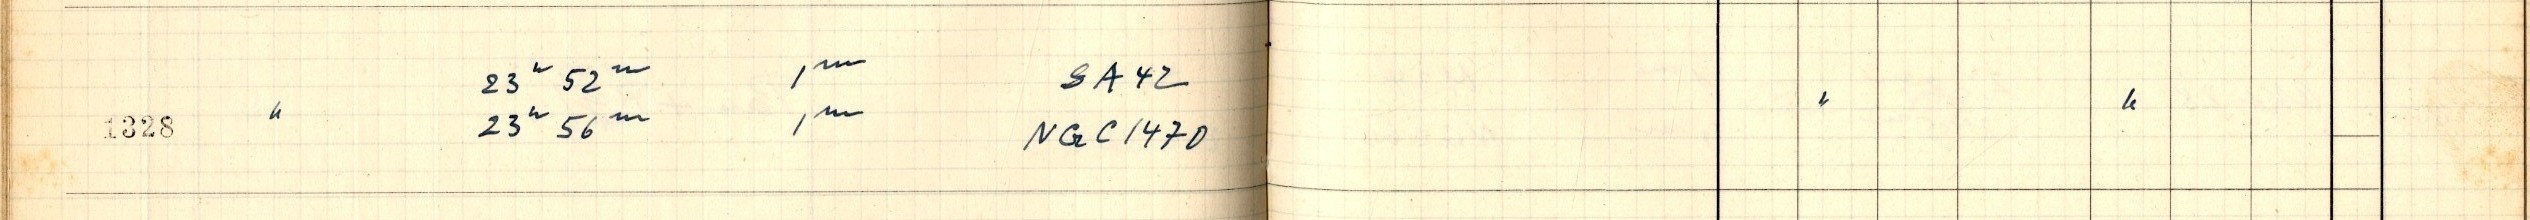 23ʰ 52ᵐ 1ᵐ SA 42
1328 " 23ʰ 56ᵐ 1ᵐ NGC 1470 " "